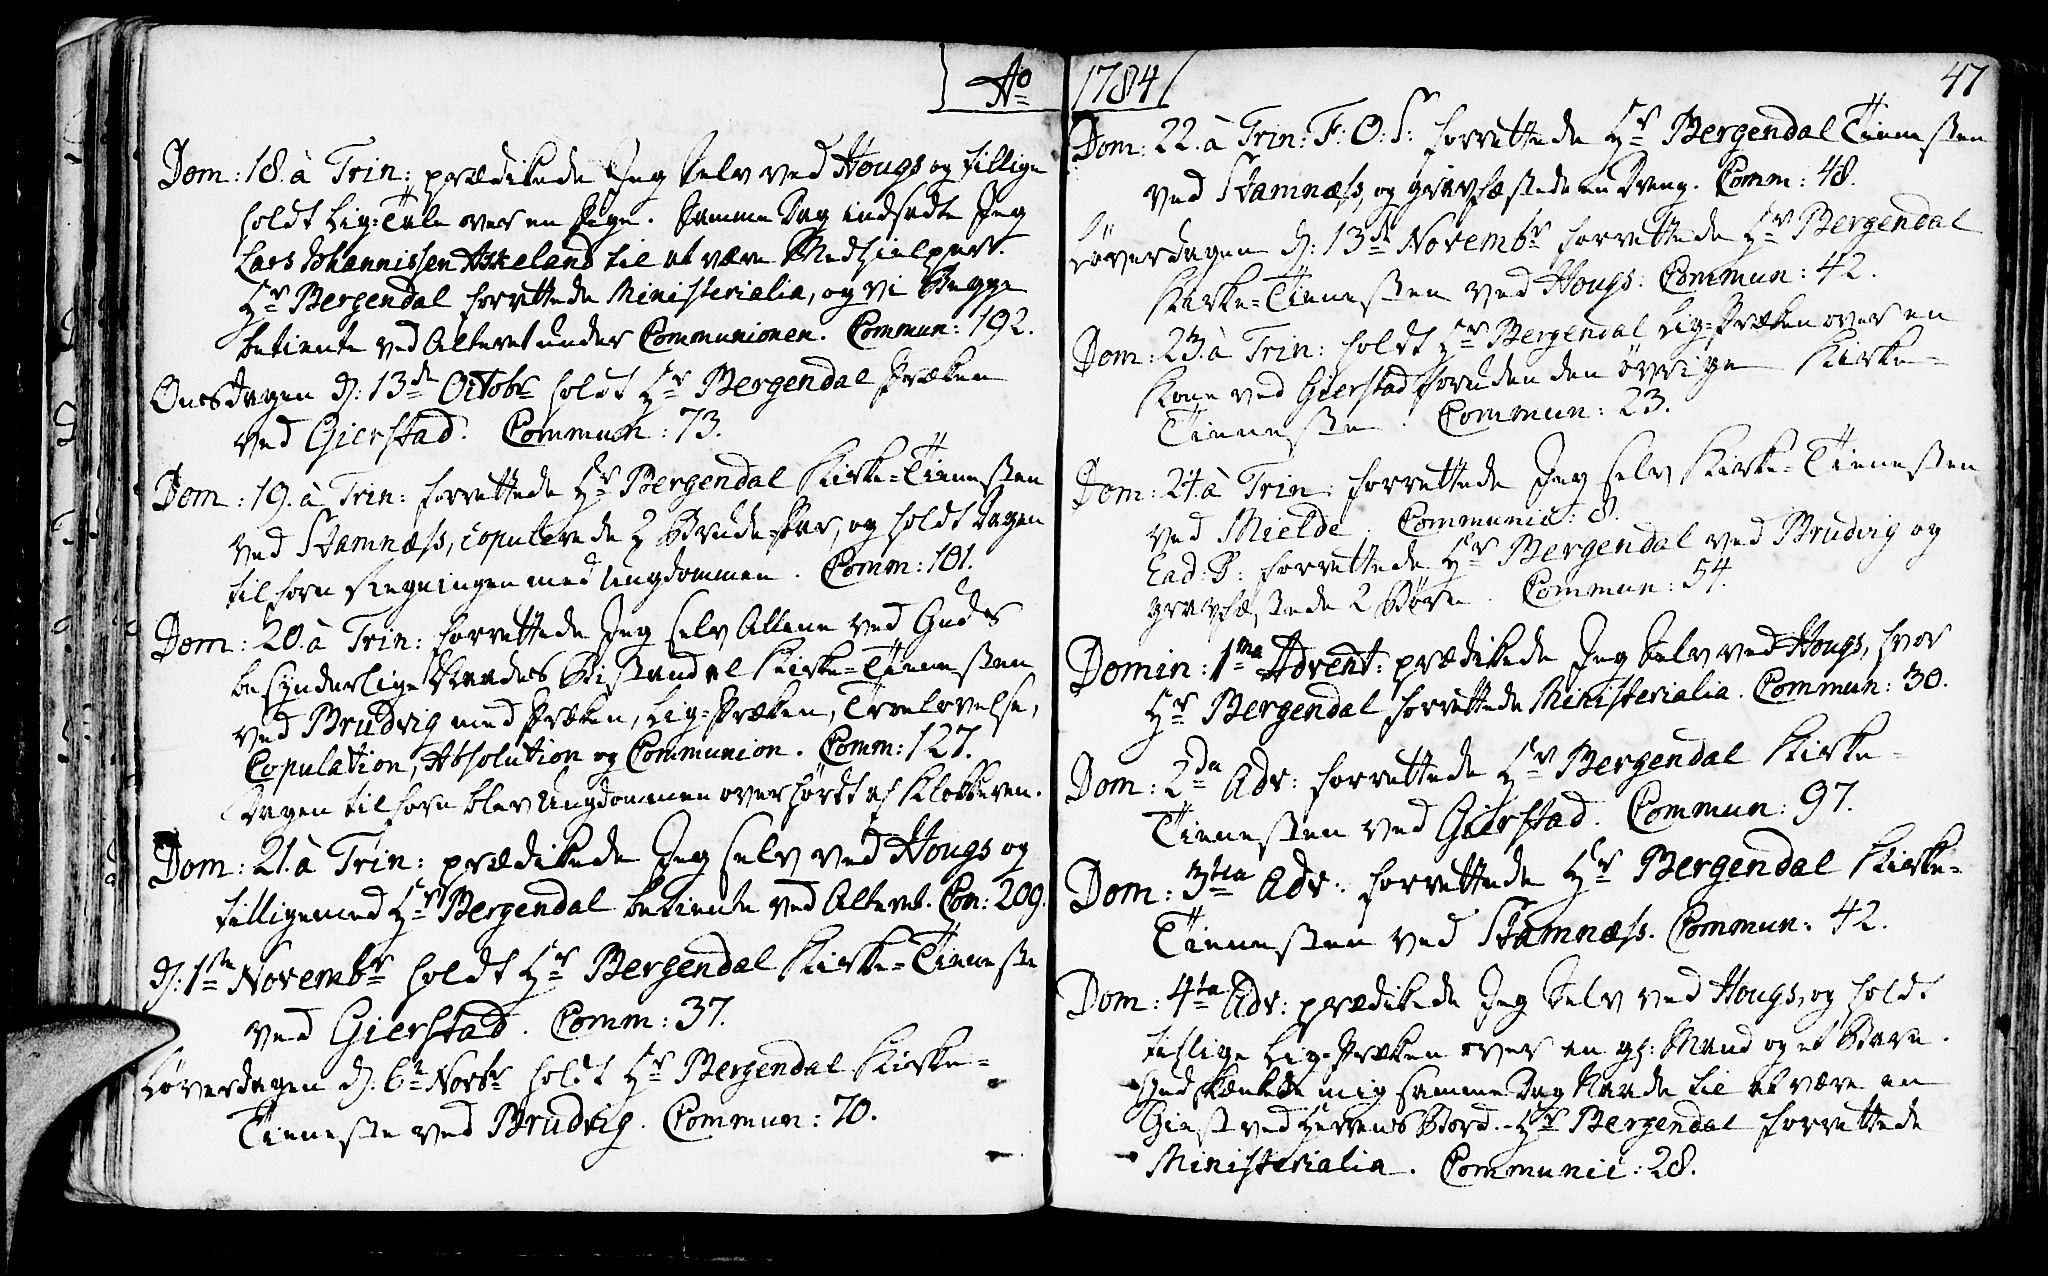 Ao 1784
47
Dom: 18. à Trin: prædikede Jeg selv ved Hougs og tillige
holdt Lig-Tale over en Pige. Samme Dag indsadte Jeg
Lars Johannissen Askeland til at være Medhielper.
Hr Bergendal forrettede Ministerialia, og vi Begge
betiente ved Alteret under Communionen. Commun: 192.
OnsDagen d: 13de Octobr holdt Hr Bergendal Præken
ved Gierstad. Commun: 73.
Dom: 19. à Trin: forrettede Hr Bergendal Kirke-Tienesten
ved Stamnæss, copulerede 2 Brude-Par, og holdt Dagen
tilforn Regningen med Ungdommen. Comm: 101.
Dom: 20. à Trin: forrettede Jeg selv Allene ved Guds
besynderlige Naades Bistand al Kirke-Tienesten
ved Brudvig med Præken, Lig-Præken, Troelovelse,
Copulation, Absolution og Communion. Comm: 127.
Dagen tilforn blev Ungdommen overhørdt af Klokkeren.
Dom: 21. à Trin: prædikede Jeg selv ved Hougs og
tilligemed Hr Bergendal betiente ved Alteret. Com: 209.
d: 1ste Novembr holdt Hr Bergendal Kirke-Tieneste
ved Gierstad. Comm: 37.
Løverdagen d: 6te Novbr holdt Hr Bergendal Kirke-
Tieneste ved Brudvig. Commun: 70.
Dom: 22. à Trin: F: O: S: forrettede Hr Bergendal Tienesten
ved Stamnæss, og gravfæstede en Dreng. Comm: 48.
Løverdagen d: 13de Novembr forrettede Hr Bergendal
Kirke-Tienesten ved Hougs. Commun: 42.
Dom: 23. à Trin: holdt Hr Bergendal Lig-Præken over en
Kone ved Gierstad foruden den øvrige Kirke-
Tieneste. Commun: 23.
Dom: 24. à Trin: forrettede Jeg selv Kirke-Tienesten
ved Mielde. Communic: 8.
Ead: D: forrettede Hr Bergendal ved Brudvig og
gravfæstede 2 Børn. Commun: 54.
Domin: 1ma Advent: prædikede Jeg selv ved Hougs, hvor
Hr Bergendal forrettede Ministerialia. Commun: 30.
Dom: 2da Adv: forrettede Hr Bergendal Kirke-
Tienesten ved Gierstad. Commun: 97.
Dom: 3tia Adv: forrettede Hr Bergendal Kirke-
Tienesten ved Stamnæss. Commun: 42.
Dom: 4ta Adv: prædikede Jeg selv ved Hougs, og holdt
tillige Lig-Præken over en gl: Mand og et Barn.
Gud skenkede mig samme Dag Naade til at være en
Giest ved Herrens Bord. - Hr Bergendal forrettede
Ministerialia. Communic: 28.